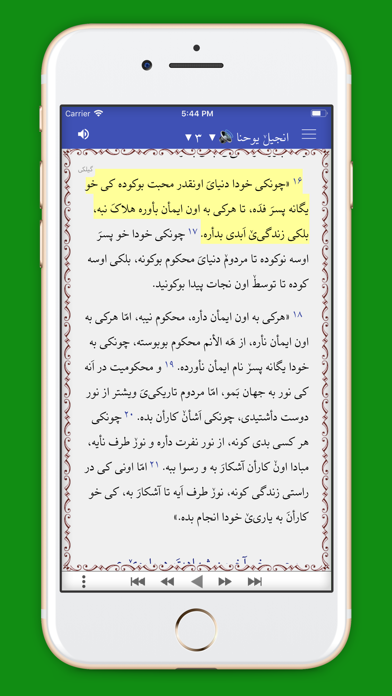 Carrier 5:44 PM
انجیلˇ یوحنا ▼ ۳ ▼
گیلکی
۱۶ «چونکی خودا دنیایَ اونقدر محبت بوکوده کی خو
یگانه پسرَ فدَه، تا هرکی به اون ایمأن بأوره هلاکَ نبه،
بلکی زندگیٚ اَبدی بدأره. ۱۷ چونکی خودا خو پسرَ
اوسه نوکوده تا مردومˇ دنیایَ محکوم بوکونه، بلکی اوسه
کوده تا توسطˇ اون نجات پیدا بوکونید.
۱۸ «هرکی به اون ایمأن دأره، محکوم نیبه، امّا هرکی به
اون ایمأن نأره، از هَه الأنم محکوم بوبوسته، چونکی به
خودا یگانه پسرˇ نام ایمأن نأورده. ۱۹ و محکومیت در اَنه
کی نور به جهان بَمو، امّا مردوم تاریکیَ ویشتر از نور
دوست دأشتیدی، چونکی اَشأنˇ کارأن بده. ۲۰ چونکی
هر کسی بدی کونه، از نور نفرت دأره و نورˇ طرف نأیه،
مبادا اونˇ کارأن آشکارَ به و رسوا ببه. ۲۱ امّا اونی کی در
راستی زندگی کونه، نورˇ طرف اَیه تا آشکارَ به، کی خو
کارأنَ به یاریٚ خودا انجام بده.»